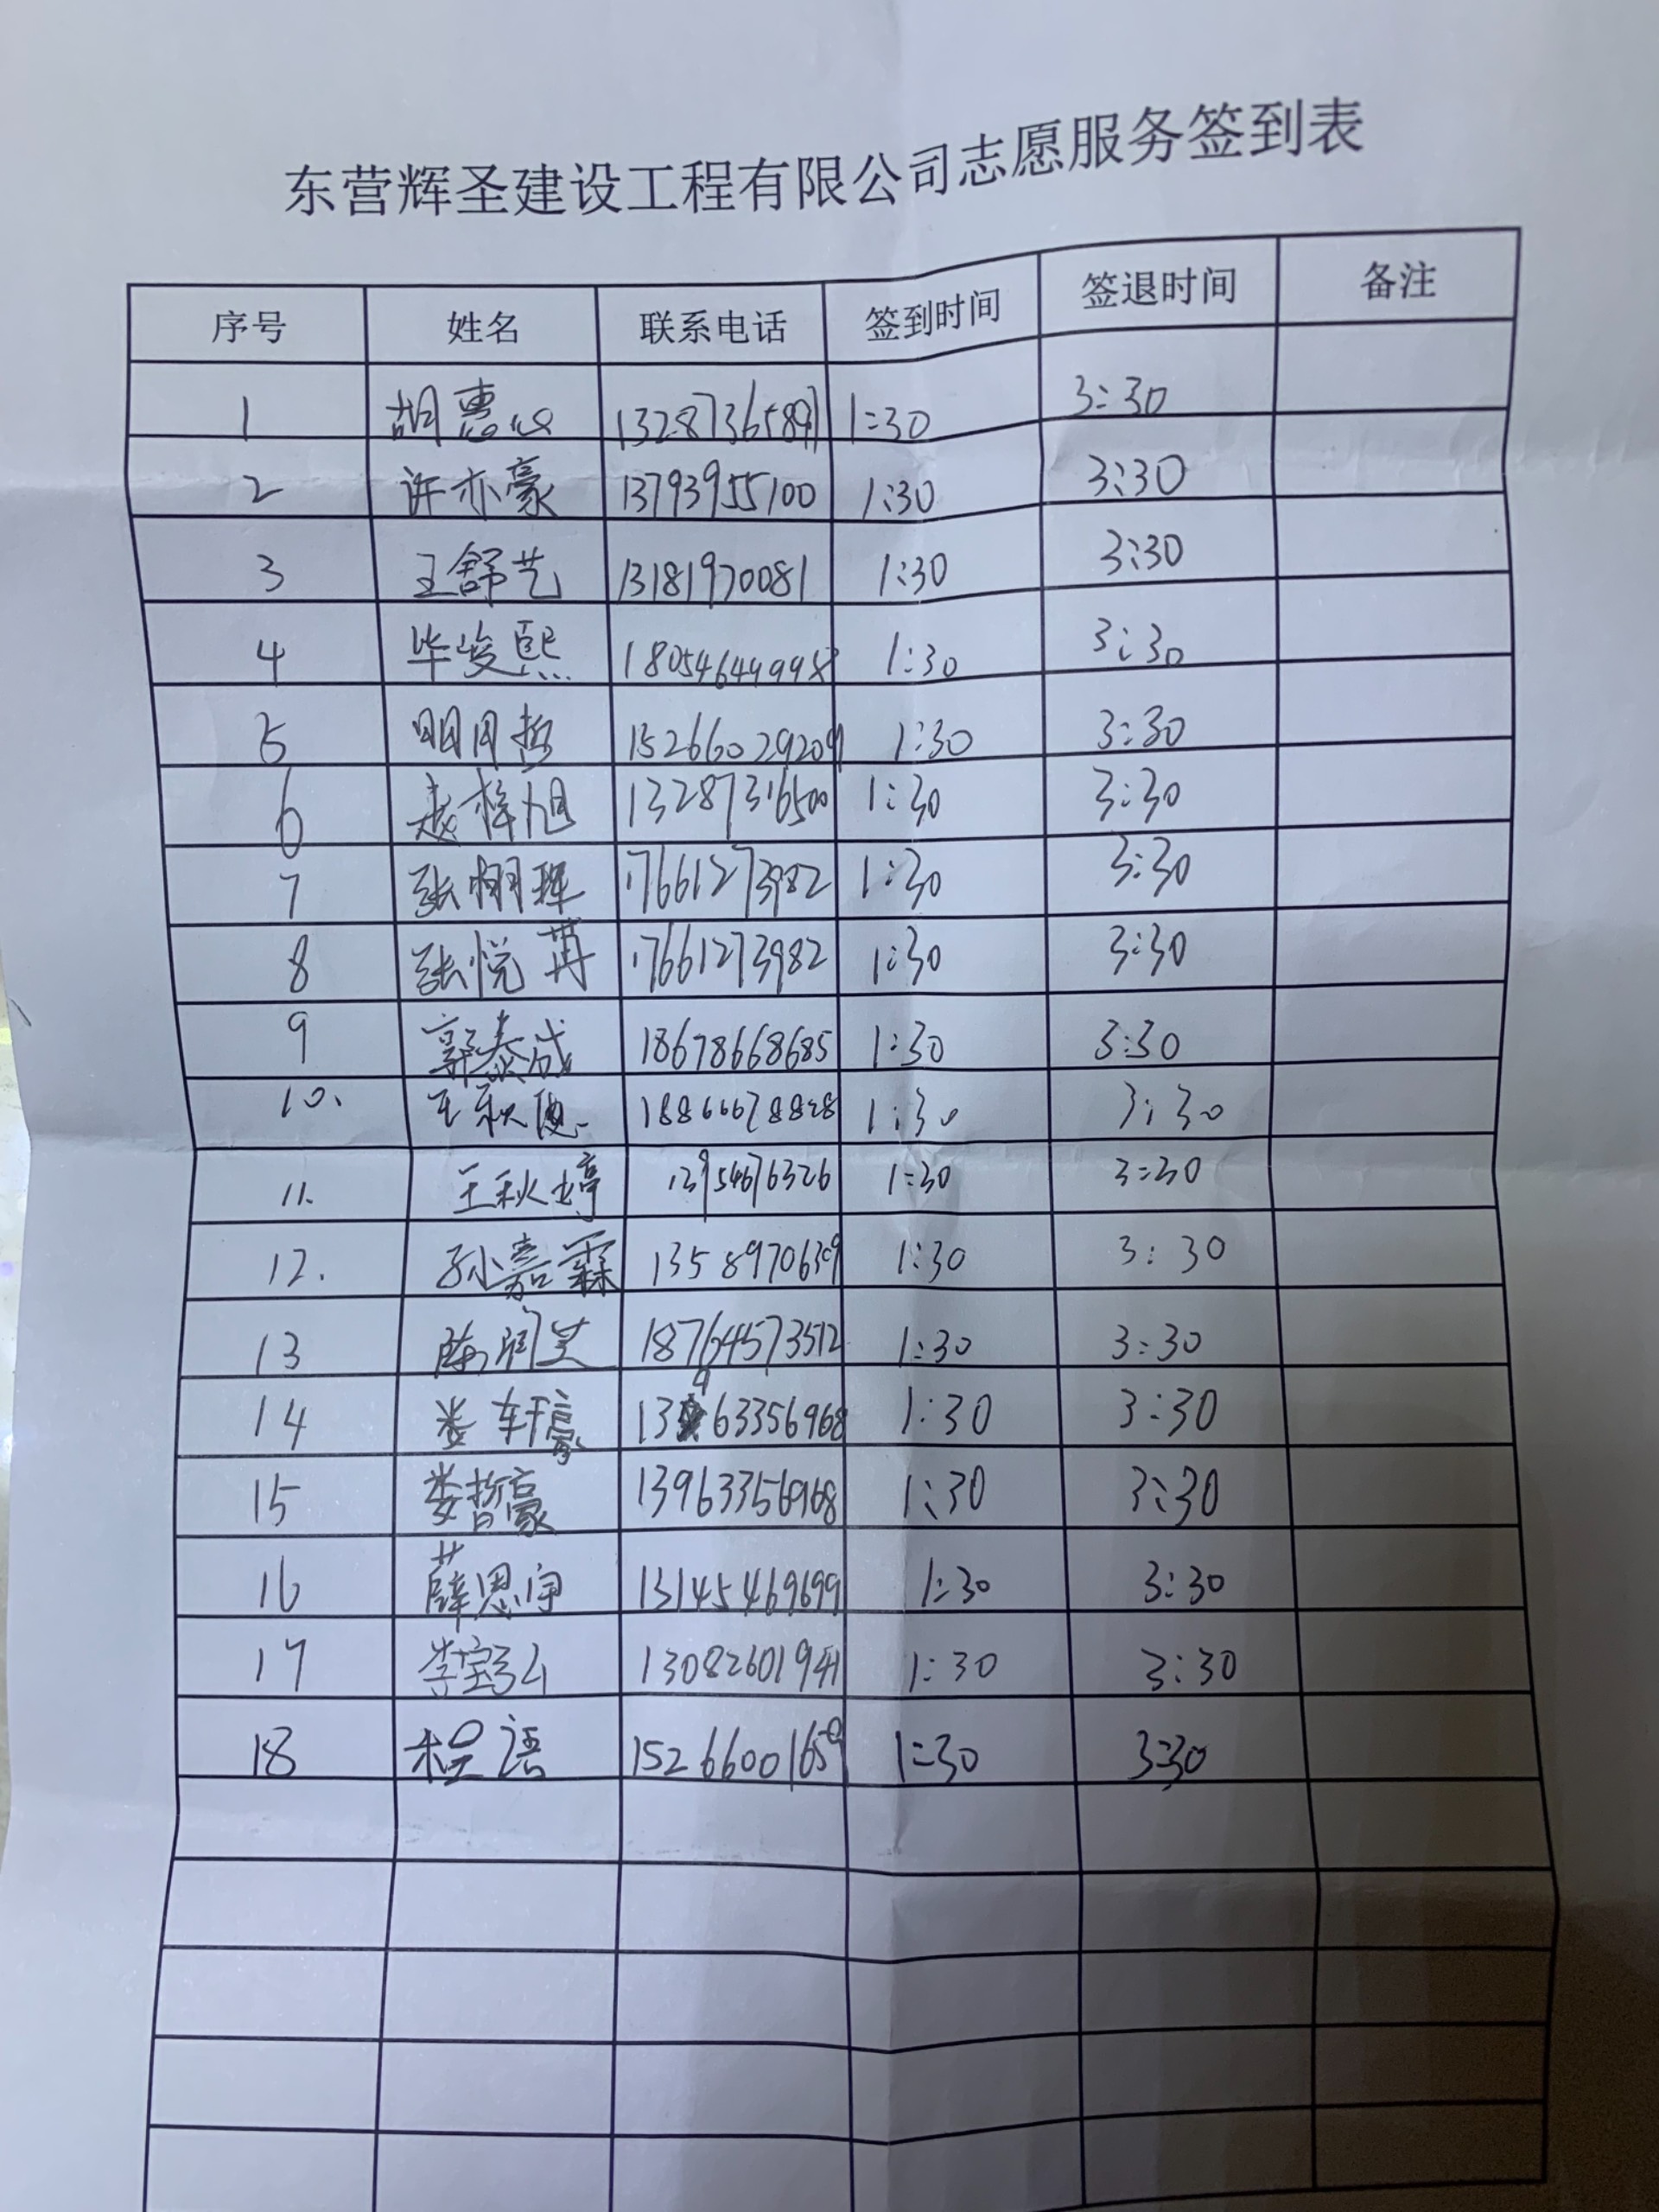 东营辉圣建设工程有限公司志愿服务签到表
序号 姓名 联系电话 签到时间 签退时间 备注
1 胡惠心 1:30 3:30
2 许亦豪 13793955100 1:30 3:30
3 王舒艺 13181970081 1:30 3:30
4 毕峻熙 18054644998 1:30 3:30
5 明月哲 15266029209 1:30 3:30
6 赵梓旭 13287316500 1:30 3:30
7 张栩珲 17661273982 1:30 3:30
8 张悦苒 17661273982 1:30 3:30
9 郭泰成 18678668685 1:30 3:30
10. 王秋 18866678828 1:30 3:30
11. 王秋婷 13954676326 1:30 3:30
12. 孙嘉霖 13589706309 1:30 3:30
13 陈润芝 18764573512 1:30 3:30
14 娄轩豪 13963356968 1:30 3:30
15 娄哲豪 13963356968 1:30 3:30
16 薛思宇 13145469699 1:30 3:30
17 李宝弘 13082601941 1:30 3:30
18 程语 15266001659 1:30 3:30